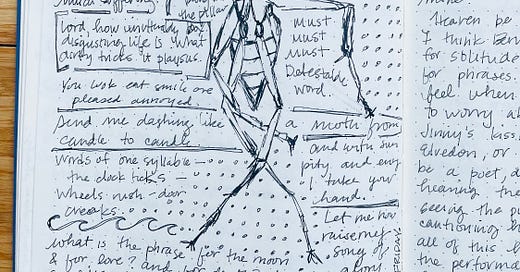 Lord, how unutterably
disgusting life is! What
dirty tricks it plays us.
You look eat smile are
pleased annoyed.
Send me dashing like
candle to candle
Words of one syllable —
the clock ticks —
wheels rush - door
creaks.
What is the phrase for the moon
& for love? and
the pillar
must
must
must
Detestable
word.
a moth from
and with
pity and envy
I take your
hand.
Let me now
raise my
song of
FRIDAY
Heaven be
I think
for solitude
for phrases.
feel when
to worry
Jinny's kiss
Elvedon, or
be a poet,
hearing the
seeing the
cautioning
all of this
the performa